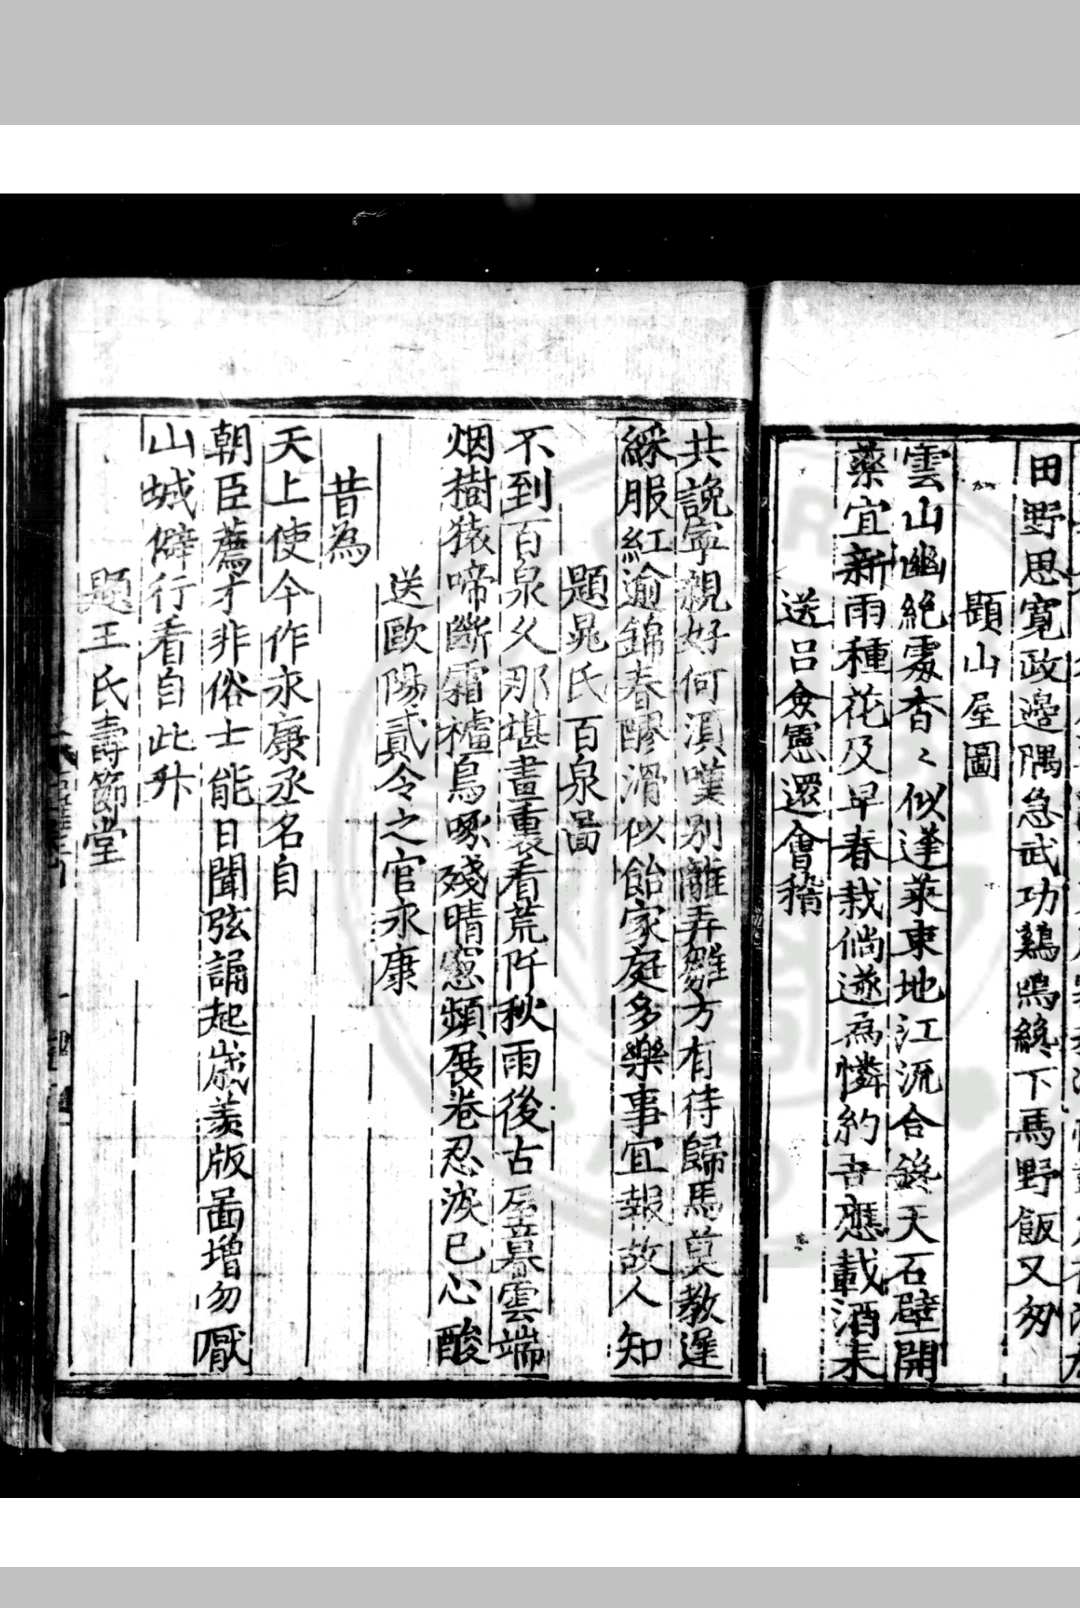 田野思寬政邊隅急武功鷄鳴纔下馬野飯又匆
題山屋圖
雲山幽絶處杳〻似蓬萊東地江流合鏡天石壁開
藥宜新雨種花及早春栽倘遂為憐約吾應載酒來
送呂僉憲還會稽
共説寧親好何須嘆别離弄雛方有待歸馬莫教遲
綵服紅逾錦春醪滑似飴家庭多樂事宜報故人知
題晁氏百泉啚
不到百泉久那堪畫裏看荒阡秋雨後古屋暮雲端
烟樹猿啼斷霜櫨鳥啄殘晴窓頻展卷忍淚已心酸
送歐陽貳令之官永康
昔為
天上使今作永康丞名自
朝臣薦才非俗士能日聞弦誦起歲羨版啚增勿厭
山城僻行看自此升
题王氏壽節堂